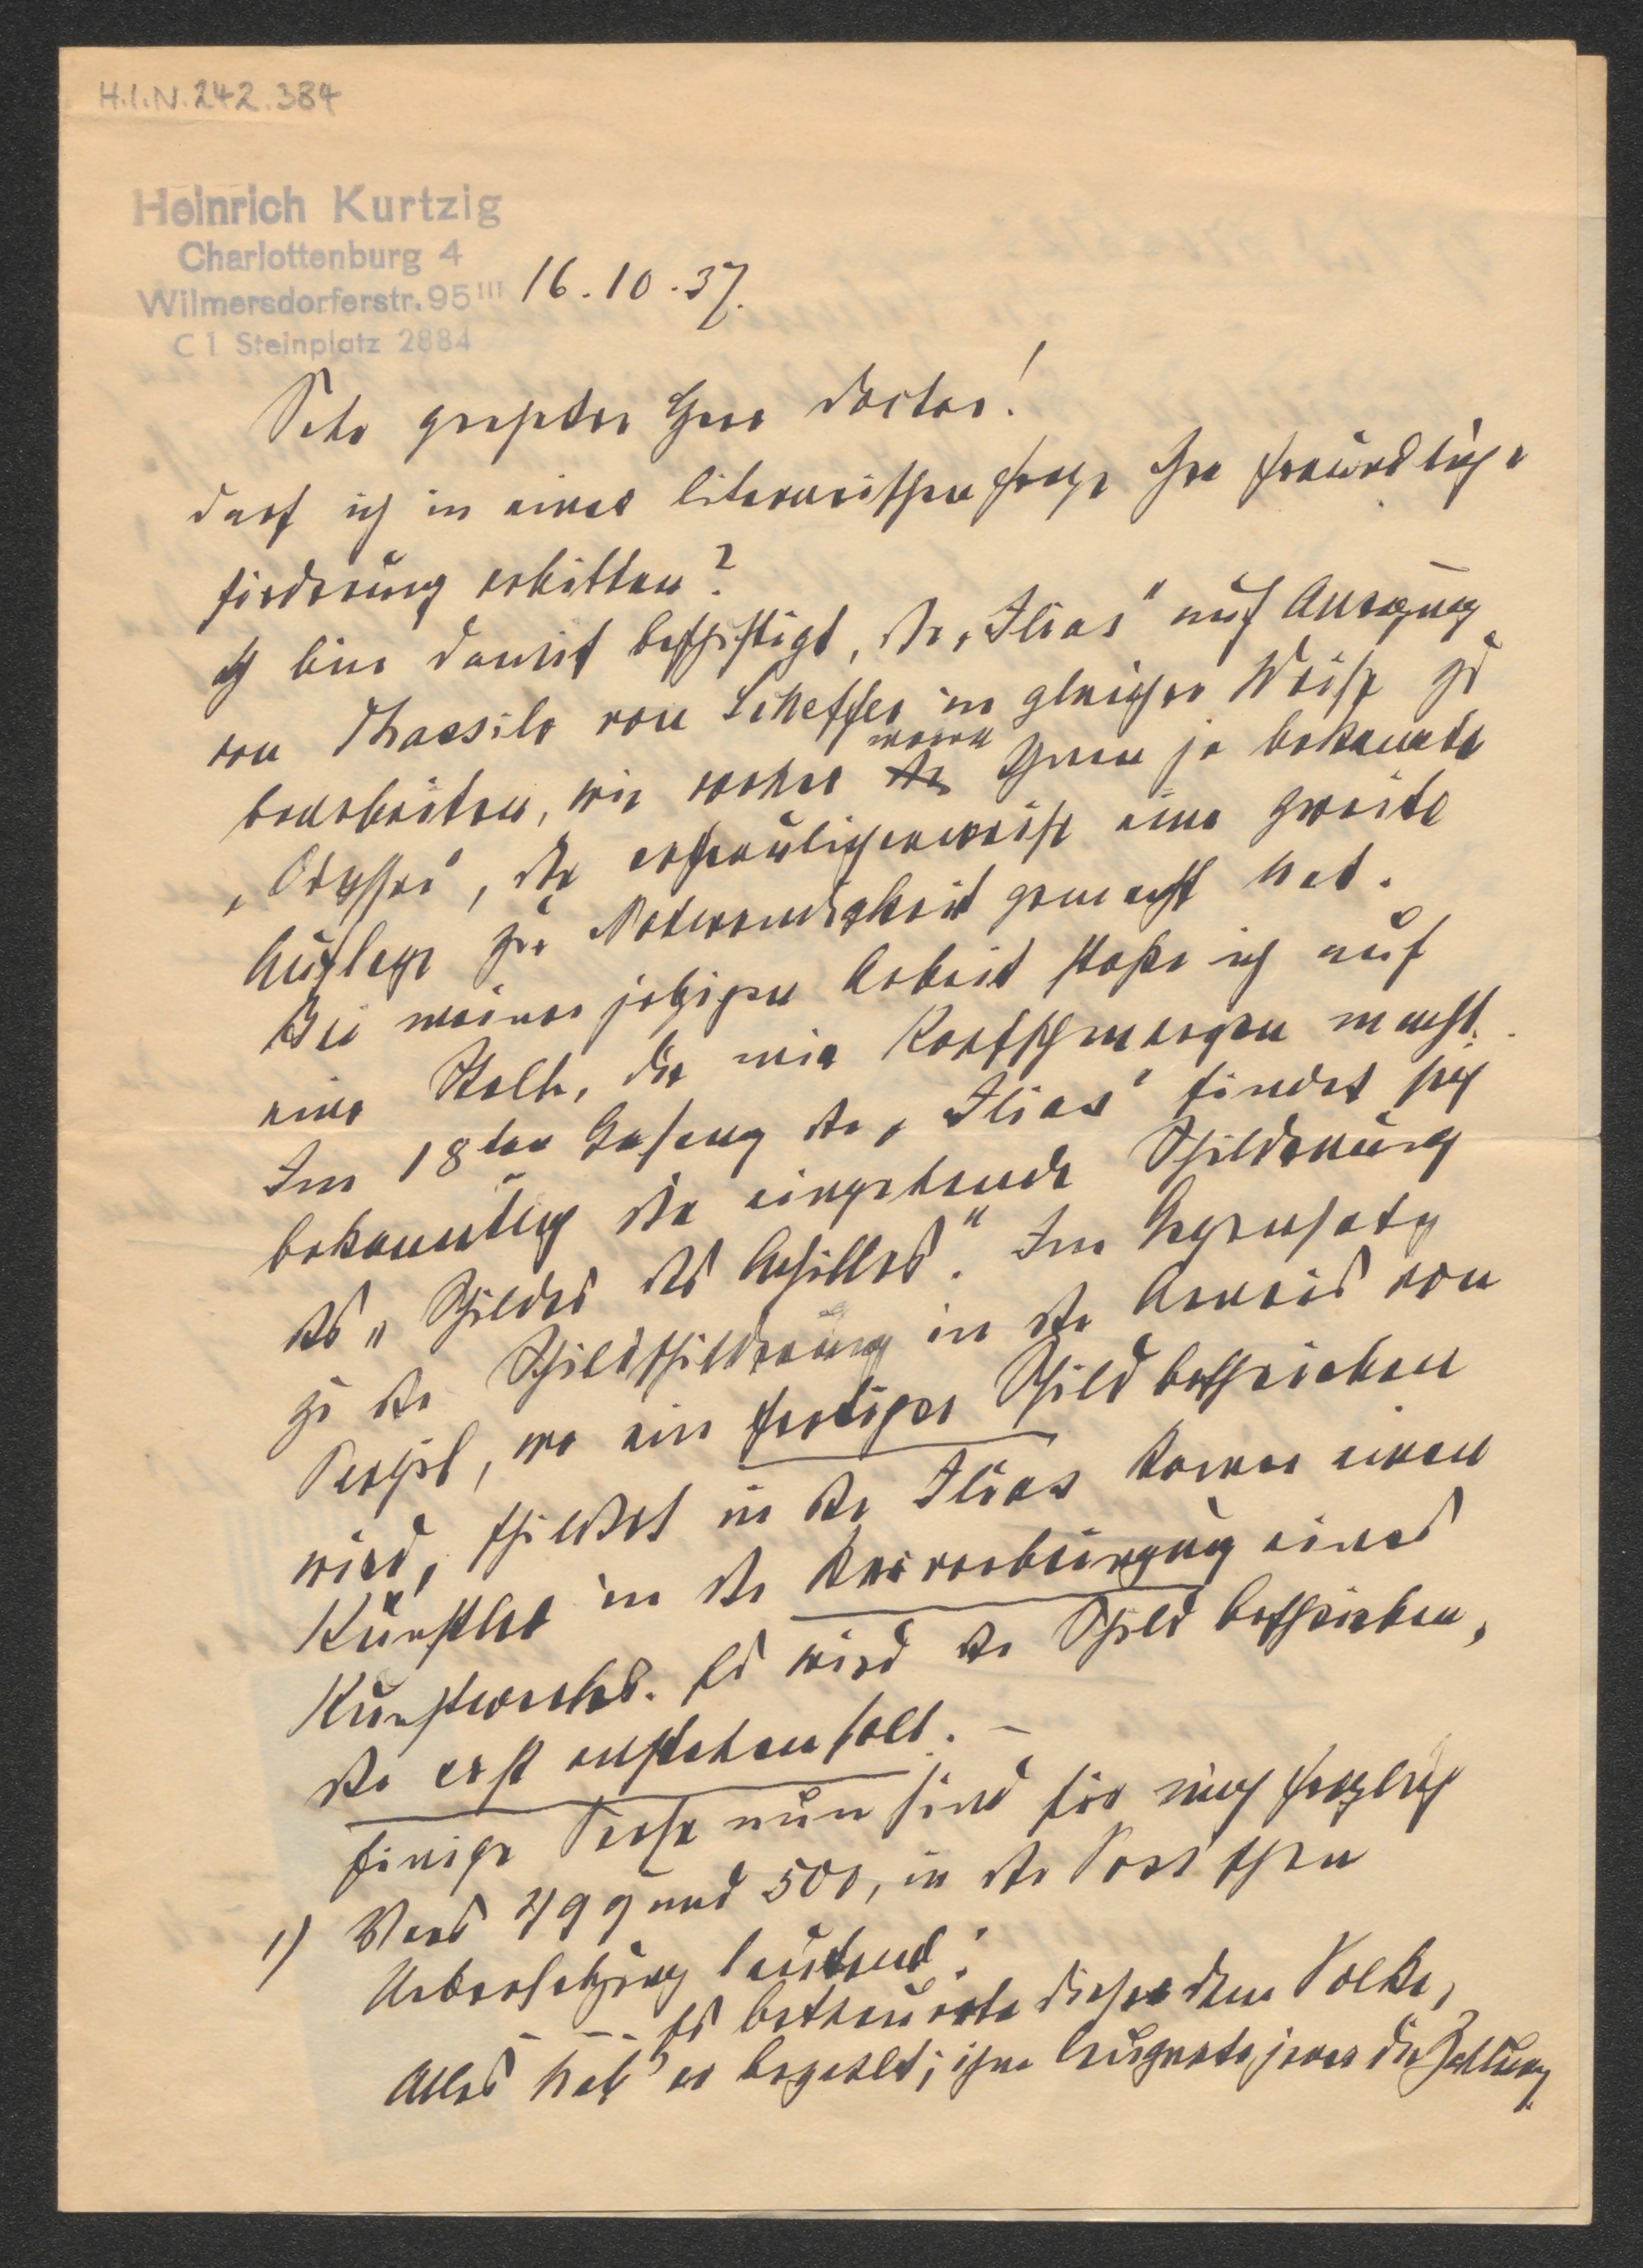 H.I.N. 242.384
Heinrich Kurtzig
Charlottenburg 4
Wilmersdorferstr. 95 III
C 1 Steinplatz 2884
16.10.37.
Sehr geehrter Herr Doctor!
darf ich in einer literarischen Frage Ihre freundliche
Förderung erbitten?
Ich bin damit beschäftigt, die „Ilias" auf Anregung
von Thassilo von Scheffer in gleicher Weise zu
bearbeiten, wie vorher meine Ihnen ja bekannte
„Odyssee", die erfreulicherweise eine zweite
Auflage zur Notwendigkeit gemacht hat.
Bei meiner jetzigen Arbeit stoße ich auf
eine Stelle, die mir Kopfschmerzen macht.
Im 18ten Gesang der „Ilias" findet sich
bekanntlich die eingehende Schilderung
des „Schildes des Achilles". Im Gegensatz
zu der Schildschilderung in der Aeneis von
Vergil, wo ein fertiger Schild beschrieben
wird, schildert in der Ilias Homer einen
Künstler in der Hervorbringung eines
Kunstwerkes. Es wird der Schild beschrieben,
der erst entstehen soll. –
Einige Verse nun sind für mich fraglich
1) Vers 499 und 500, in der Voss'schen
Uebersetzung lautend:
– – –. Es beteuerte dieser dem Volke,
Alles hab' er bezahlt; ihm leugnete jener die Zahlung